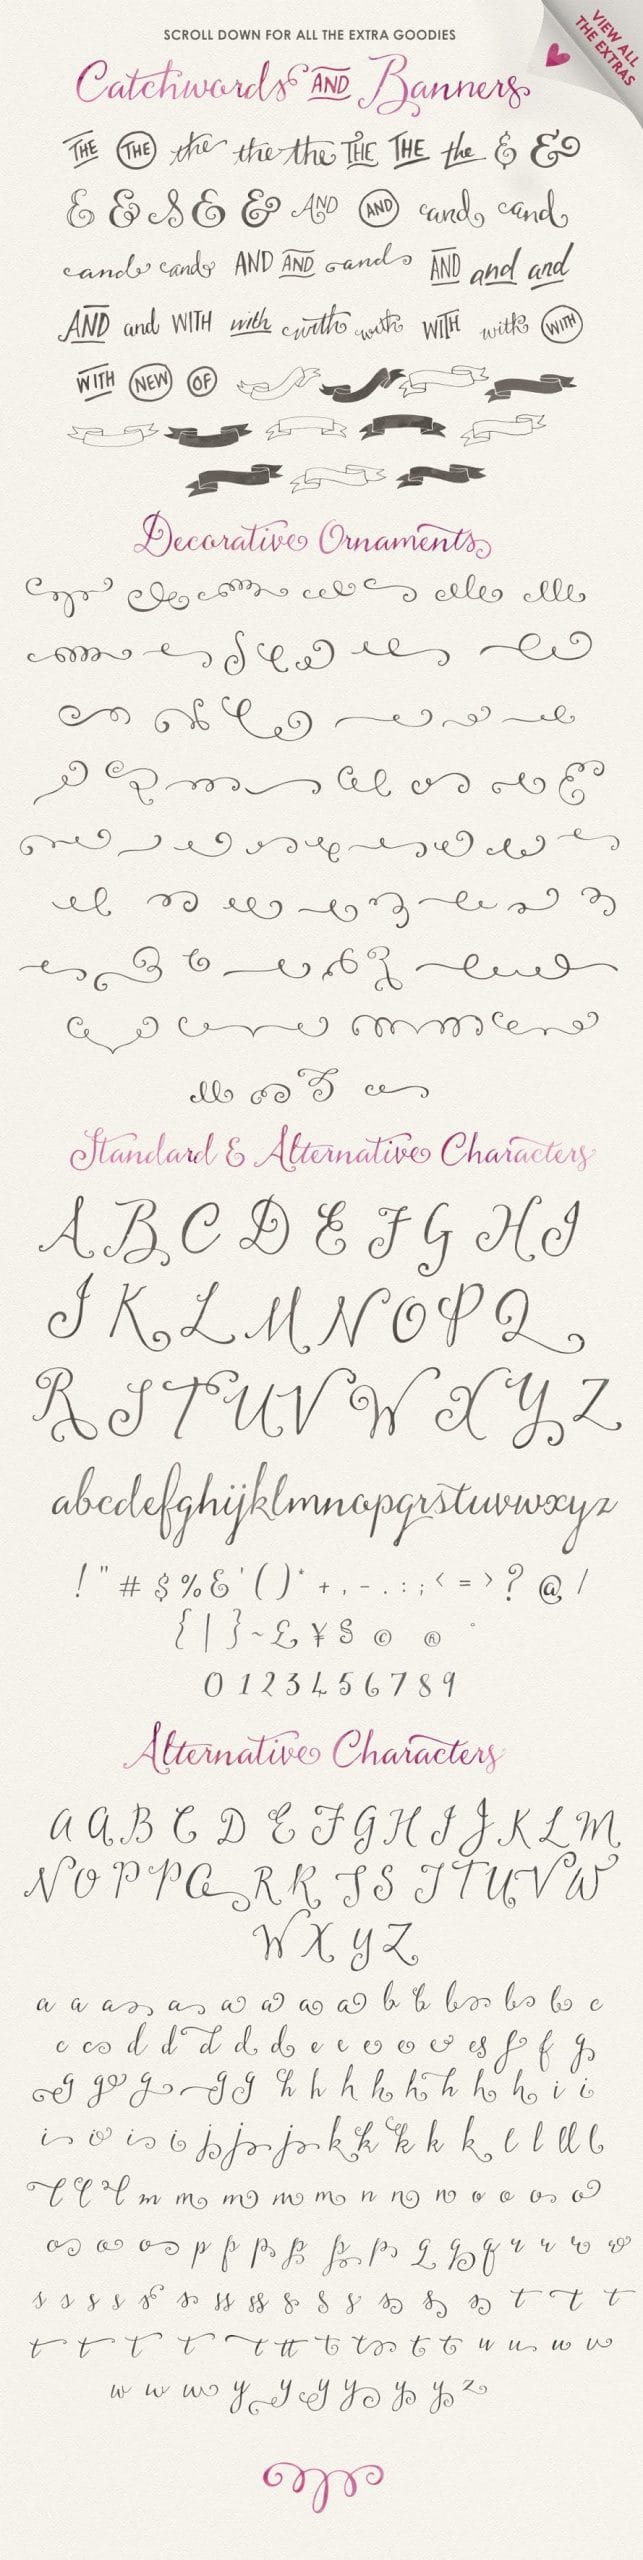 SCROLL DOWN FOR ALL THE EXTRA GOODIES
VIEW ALL
THE EXTRAS
Catchwords AND Banners
THE THE the the the THE THE the & &
& & & & & AND AND and and
and and AND AND and AND and and
AND and WITH with with with WITH with WITH
WITH NEW OF
Decorative Ornaments
Standard & Alternative Characters
A B C D E F G H I
J K L M N O P Q
R S T U V W X Y Z
abcdefghijklmnopqrstuvwxyz
! " # $ % & ' ( ) * + , - . : ; < = > ? @ /
{ | } ~ £ ¥ § © ® °
0 1 2 3 4 5 6 7 8 9
Alternative Characters
A A B C D E F G H I J K L M
N O P P Q R R S S T T U V W
W X Y Z
a a a a a a a a b b b b b c
c c d d d d e e e e e es f f g
g g g g g h h h h h h h i i
i i i i j j j k k k k k l l ll l
l l l m m m m m n n n o o o o
o o o p p p p p p q q q r r r r
s s s s s s ss ss s s s s s s t t t
t t t t t tt t t t t u u u v
w w w y y y y y y z